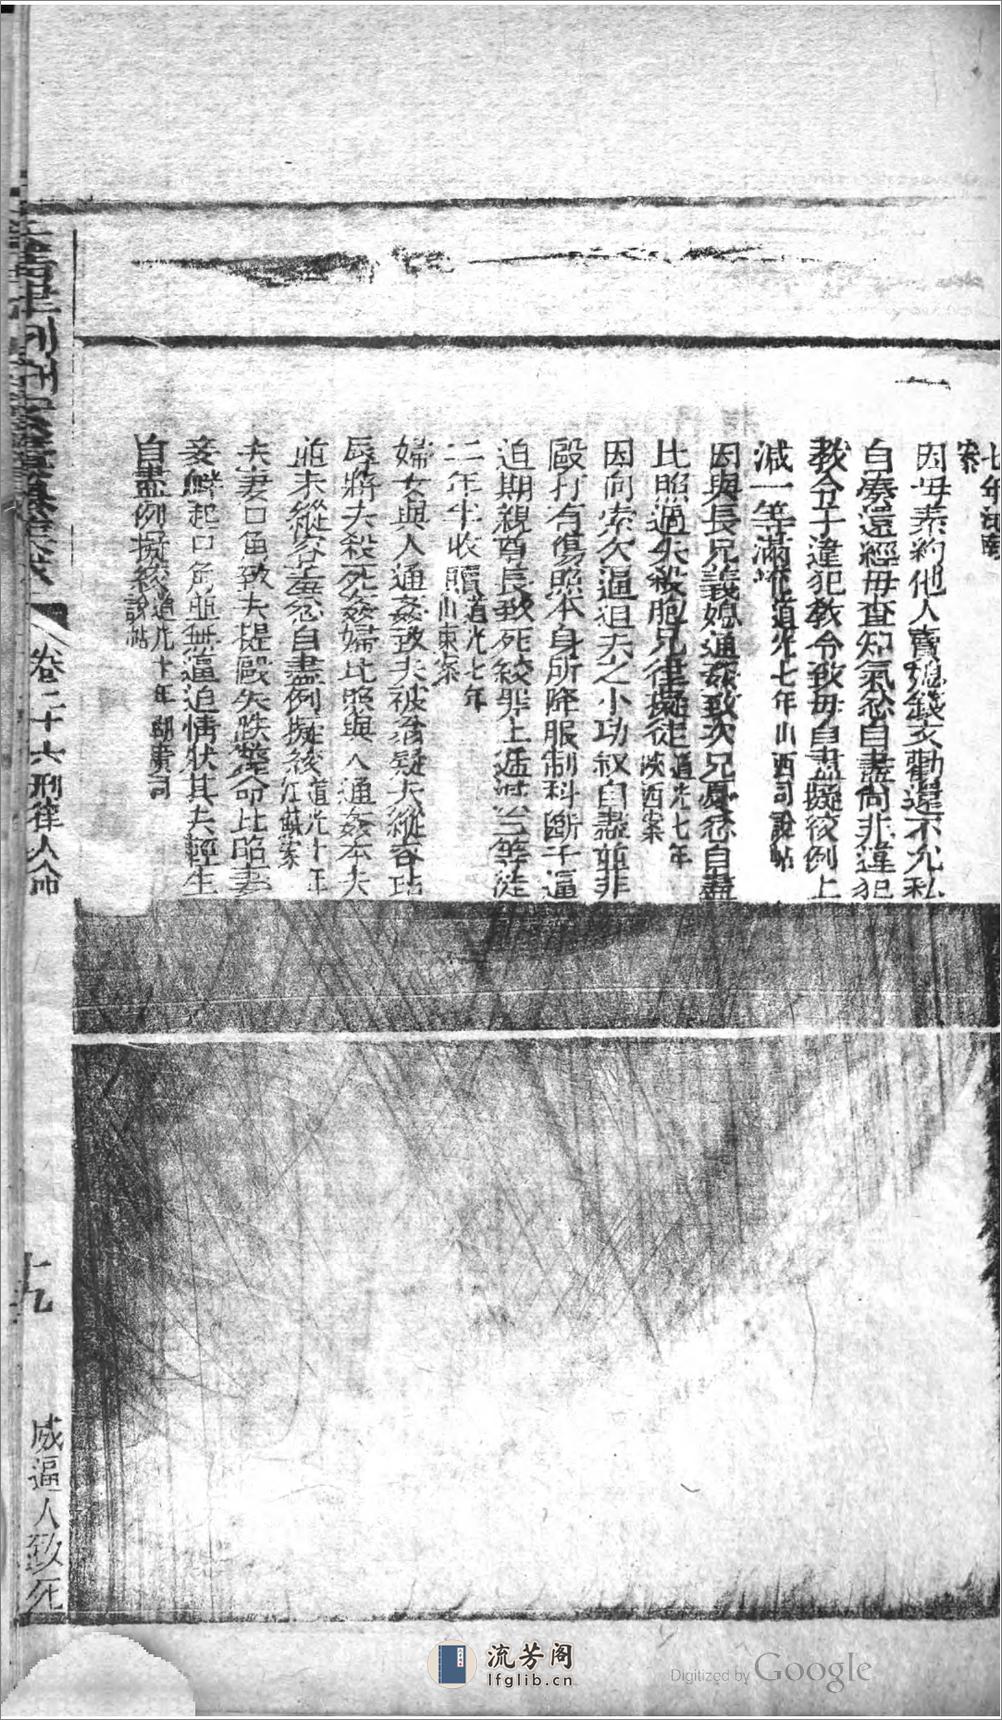 七年
案
因母素約他人賣媳錢文勸還不允私
自湊還經母查知氣忿自盡尚非違犯
教令子違犯教令致母自盡擬絞例上
減一等滿流道光七年山西司說帖
因與長兄義媳通姦致次兄忿自盡
比照過失殺胞兄律擬徒道光七年陝西案
因向索欠逼迫夫之小功叔自盡並非
毆打有傷照本身所降服制科斷于逼
迫期親尊長致死絞罪上遞減三等徒
二年半收贖道光七年山東案
婦女與人通姦致夫被人疑夫縱容玷
辱將夫殺死姦婦比照與人通姦本夫
並未縱容羞忿自盡例擬絞道光十年江蘇案
夫妻口角致夫提毆失跌斃命比照妻
妾衅起口角並無逼迫情狀其夫輕生
自盡例擬絞道光十年湖廣司說帖
卷二十六刑律人命
十九
威逼人致死
流芳阁
lfglib.cn
Digitized by Google